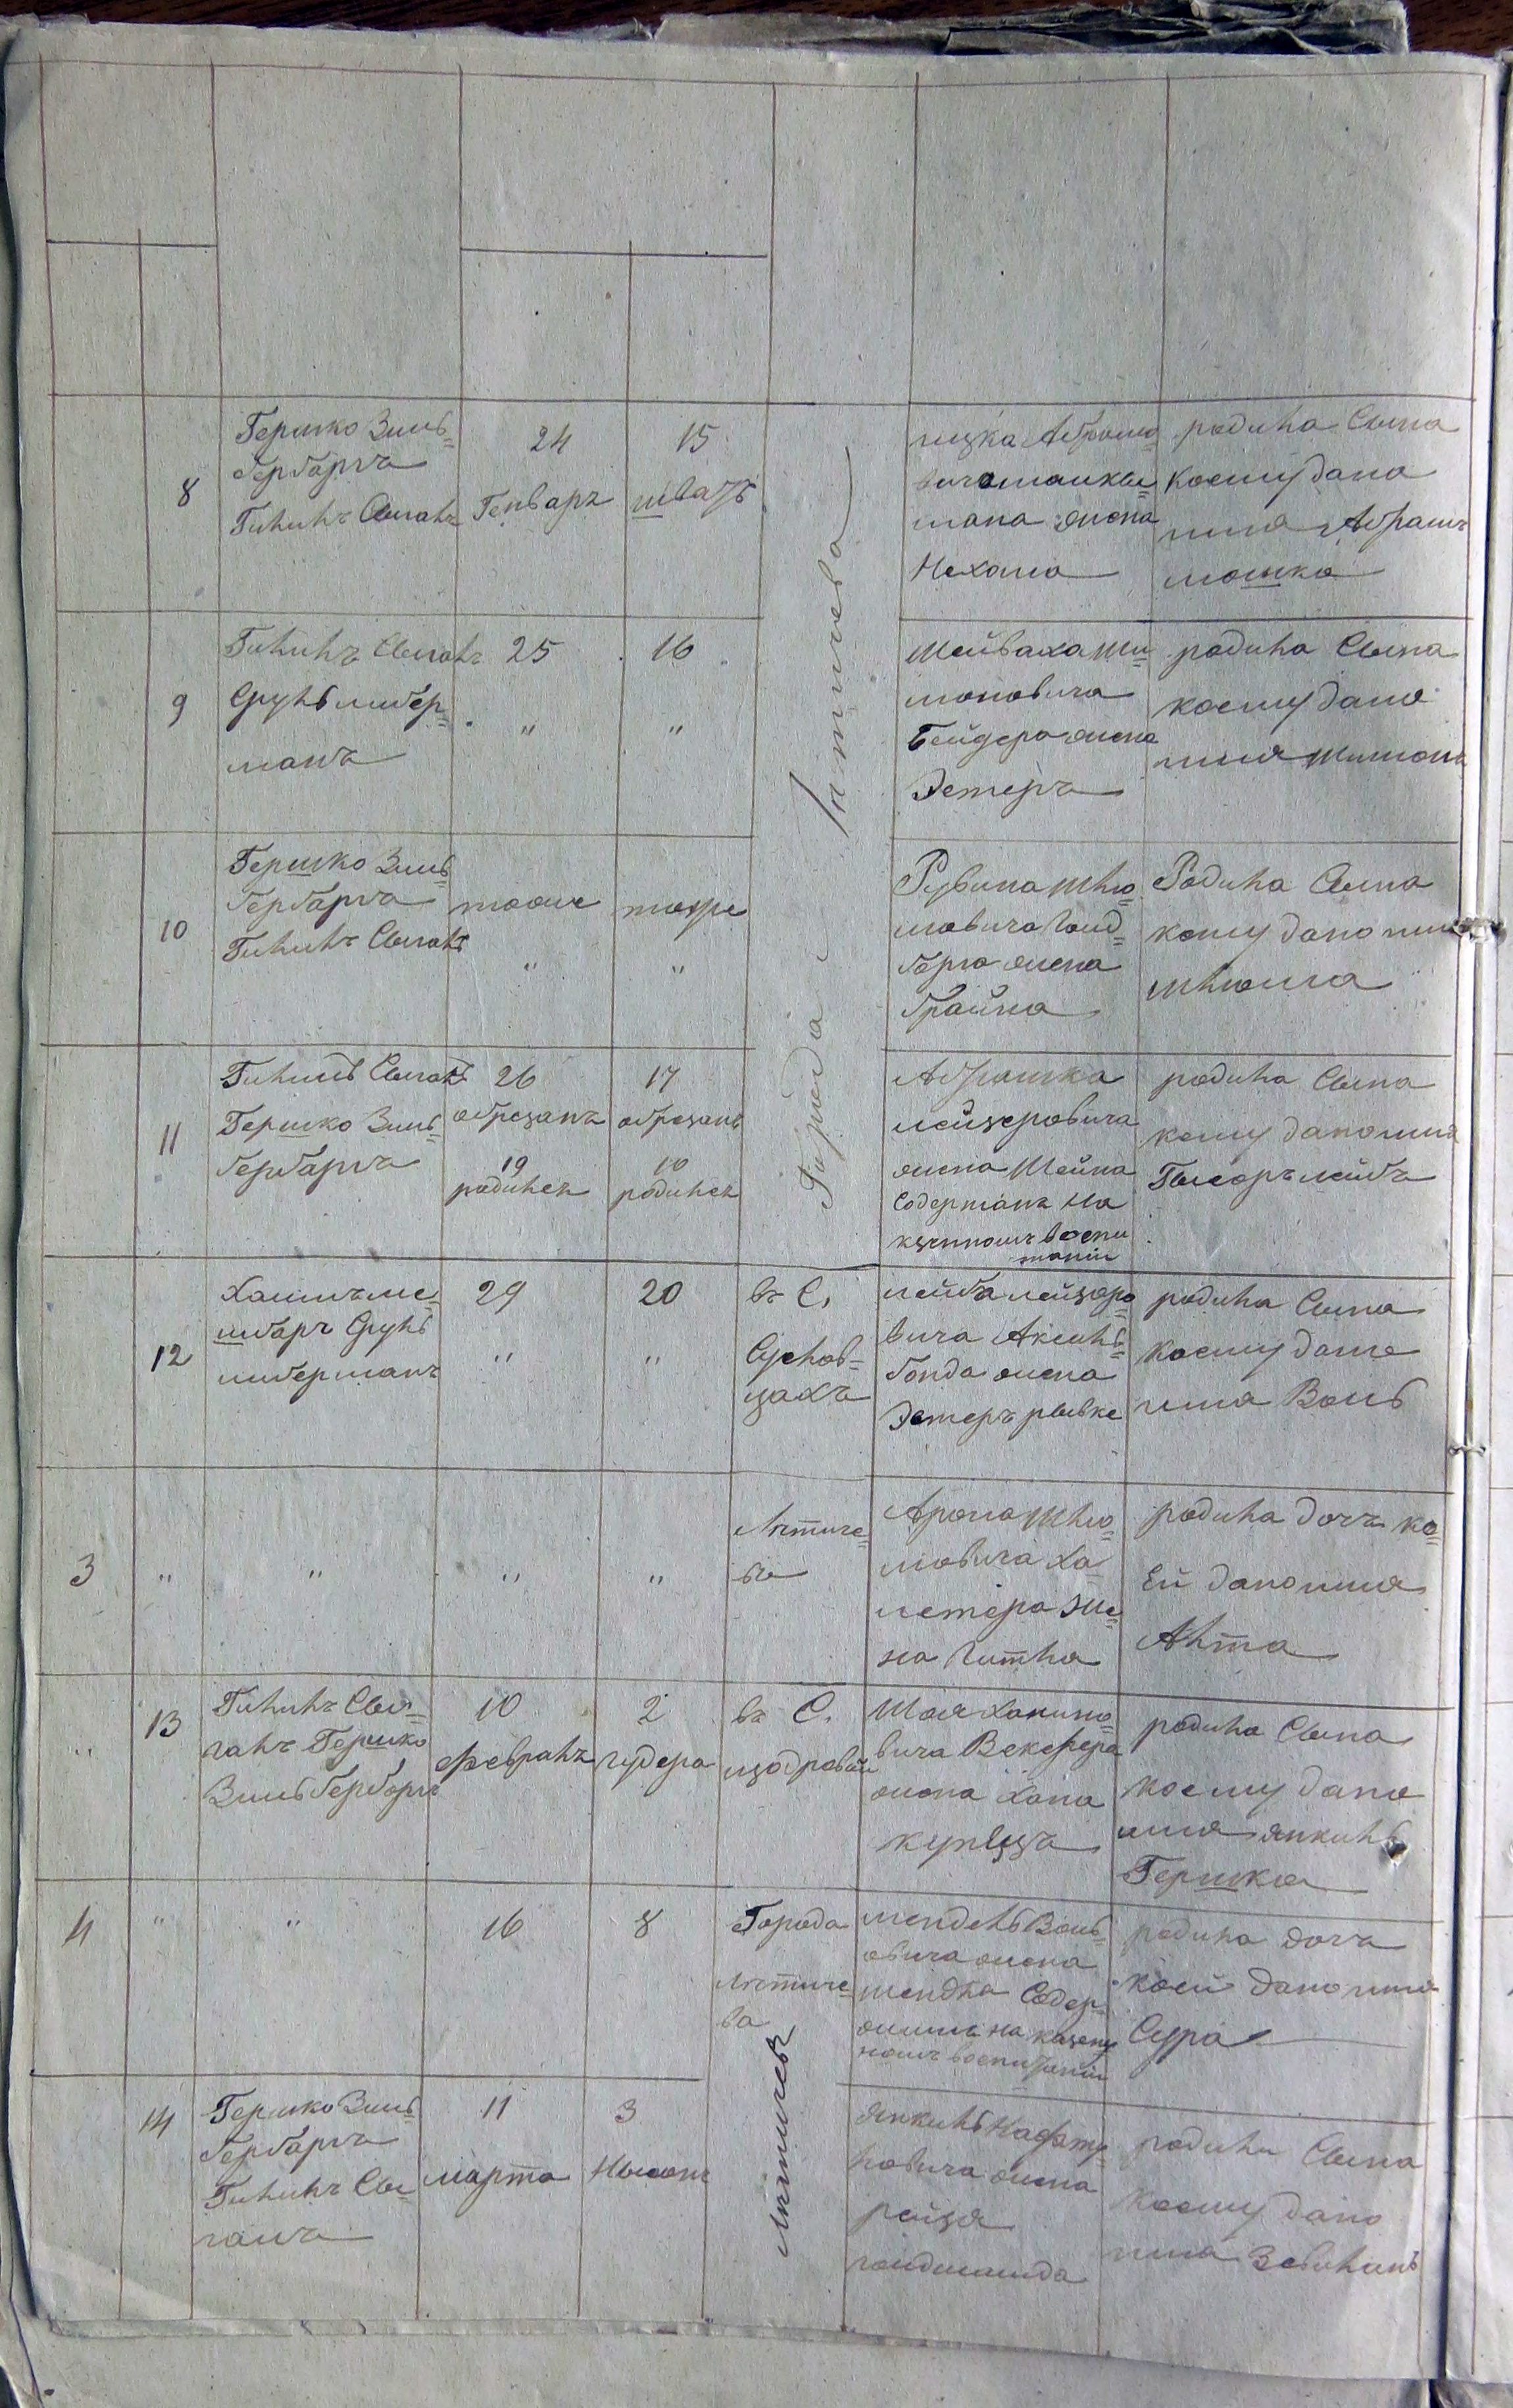 8
Гершко Зиль=
бербаргъ
Гилилъ Сыгалъ
24
Генваря
15
шватъ
Города Летичева
ицка Абрамо
вича
жена
Нехама
родила Сына
коему дано
имя Абрамъ
мошко
9
Гилилъ Сыгалъ
Сруль либер=
манъ
25
"
16
"
Шейваха Ши=
моновича
Бейдера жена
Эстеръ
родила Сына
коему дано
имя Шимонъ
10
Гершко Зиль=
бербаргъ
Гилилъ Сыгалъ
тоже
"
тоже
"
Рувина Шлио=
мовича Гольд=
барга жена
Брайна
Родила Сына
кому дано имя
Шлиома
11
Гилиль Сыгалъ
Гершко Зиль=
бербаргъ
26
обрезанъ
19
родился
17
обрезанъ
10
родился
Абрашка
лейзеровича
жена Шейна
Содержанъ на
казенномъ воспи
таніи
родила Сына
кему дано имя
лейбъ
12
Хаимъ ме=
Сруль
либерманъ
29
"
20
"
въ С.
Сусловцахъ
лейба лейзеро=
вича Аксиль=
бонда жена
Эстеръ рывке
родила Сына
коему дано
имя Воль
3
"
"
"
"
Летиче=
ве
Арона Шлио=
мовича Ха=
жена
Гитла
родила дочь ко=
ей дано имя
Алта
"
13
Гилилъ Сы=
галъ Гершко
Зильбербаргъ
10
февраля
2
въ С.
Шая Хаимо=
вича Векслера
жена Хана
родила Сына
коему дано
имя янкиль
Гершко
4
"
"
16
8
Города
Летиче=
ва
мендельВоль=
овича жена
Содер=
на казенно
номъ воспитаніи
родила дочь
коей дано имя
Сура
14
Гершко Зиль=
бербаргъ
Гилилъ Сы=
галъ
11
марта
3
Нысонъ
Летичевъ
янкиль Нафту=
ловича жена
рейзя
родила Сына
коему дано
имя